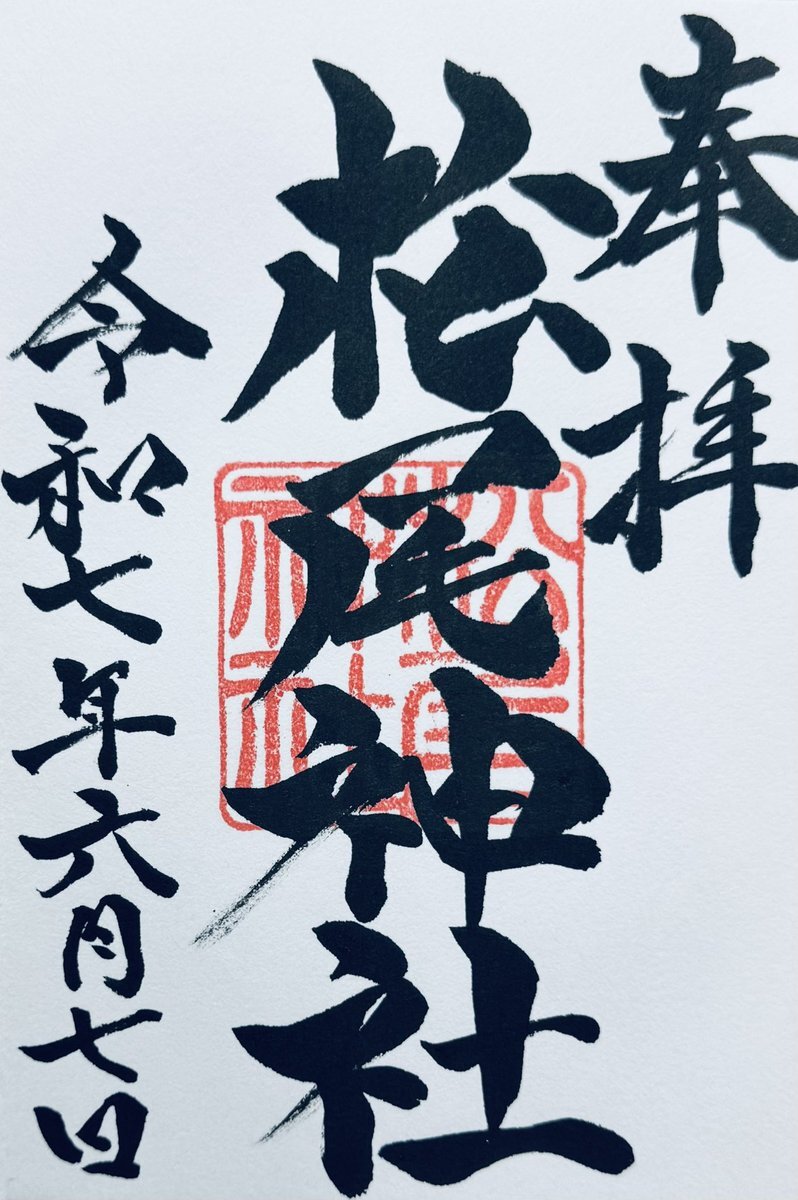 奉拝
松尾神社
令和七年六月七日